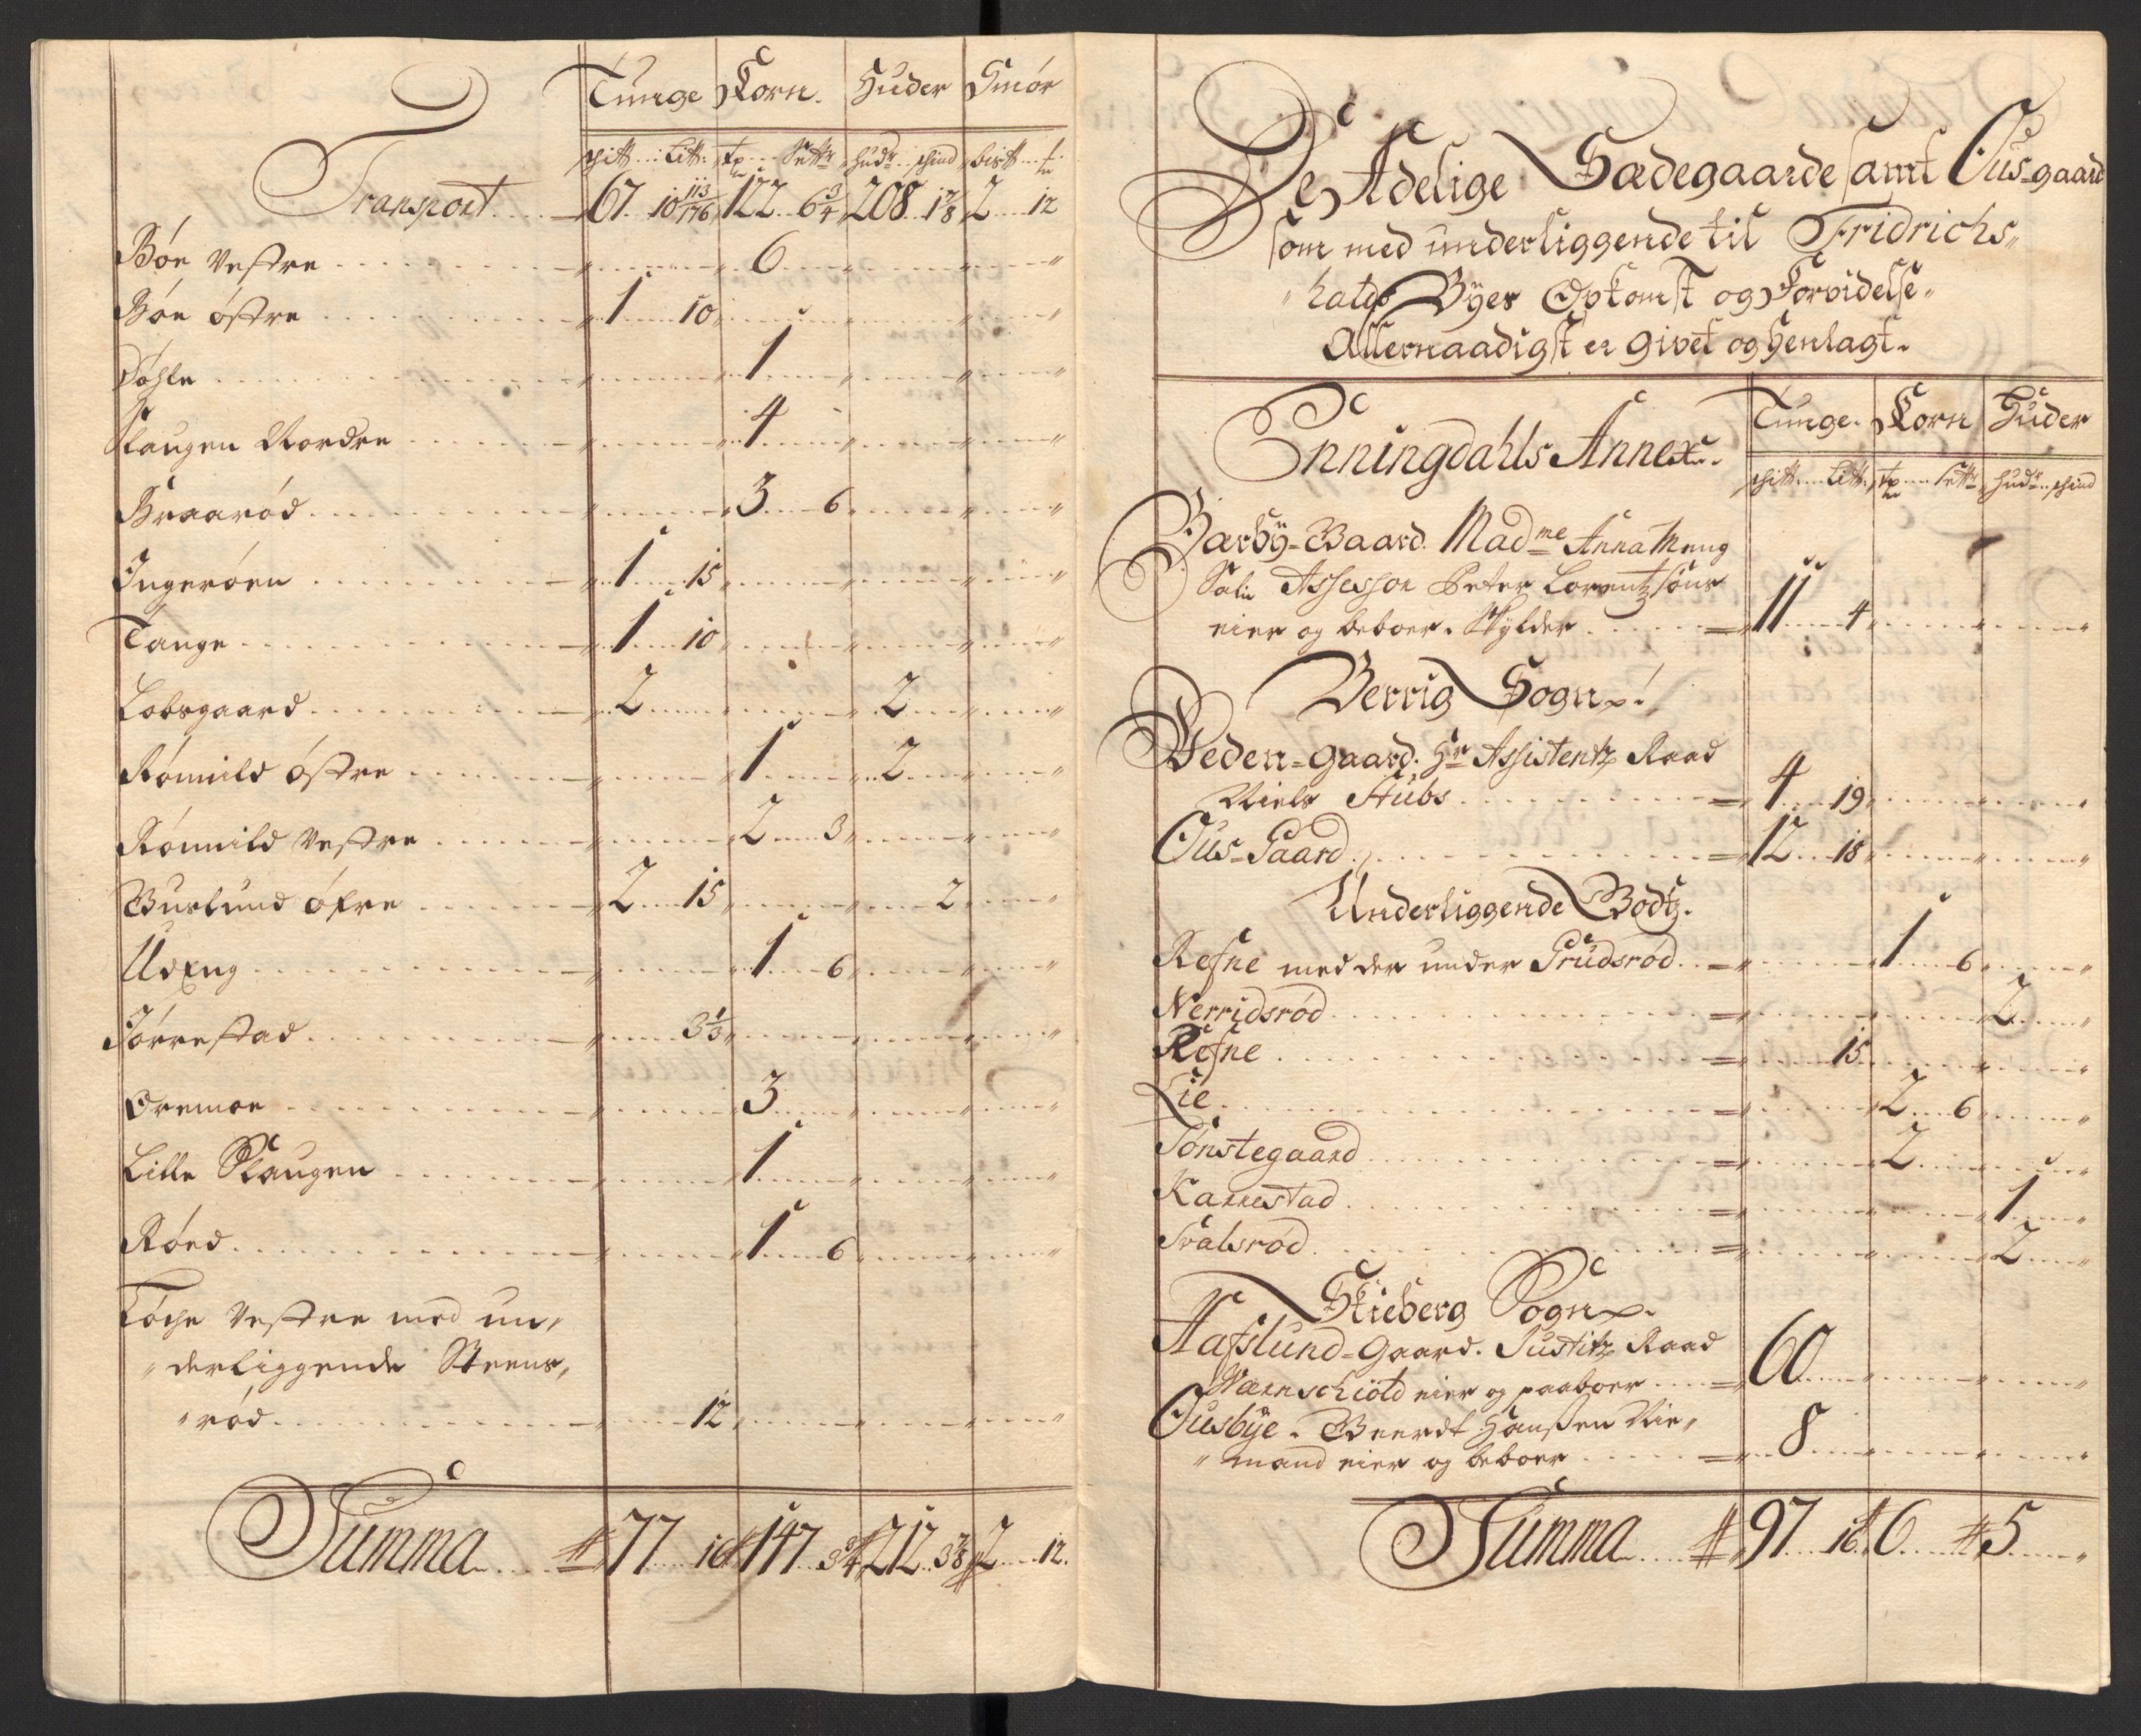 Tunge Korn. Huder Smör
schtt. Litt: tr Settr hudr schind bistt tr
Transport 67 10 113/176 122 6 3/4 208 1 7/8 2 12
Böe Vestre 6
Böe östre 1 10
Döhle 1
Haugen Nordre 4
Braaröd 3 6
Ingeröen 1 15
Tange 1 10
Labsgaard 2 2
Römild östre 1 2
Römild Vestre 2 3
Buslund öfre 2 15 2
Udeng 1 6
Törrestad 3 1/3
Oremoe 3
Lille Haugen 1
Röed 1 6
Töche Vestre med un„
„derliggende Steens„
„röd 12
Summa 77 147 3 3/4 212 3 7/8 2 12.
De Adelige Sædegaarde samt Ous-gaard
som med underliggende til Fridrichs„
„halds Byes Opkomst og Forvidelse„
Allernaadigst er givet og henlagt.
Enningdahls Annex.
Tunge. Korn Huder
schtt. Litt. tr Settr hudr schind
Bærby-Gaard. Madme Anna Meng
Salig Assessor Peter Lorentzsöns
eier og beboer. Skylder 11 4
Berrig Sogn.
Weden-gaard. Hr Assistentz Raad
Niels Stubs 4 19
Ous-Gaard 12 18
Underliggende Godtz.
Refne med der under Prudsröd 1 6
Nerridsröd 2
Refne 15
Lie 2 6
Tönstegaard 2
Karrestad 1
Svalsröd 2
Skieberg Sogn.
Hafslund-gaard. Justitz Raad
Wærnschiöld eier og paaboer 60
Ousbÿe. Geerdt Hanssen Nie„
„mand eier og beboer 8
Summa 97 16 6 5